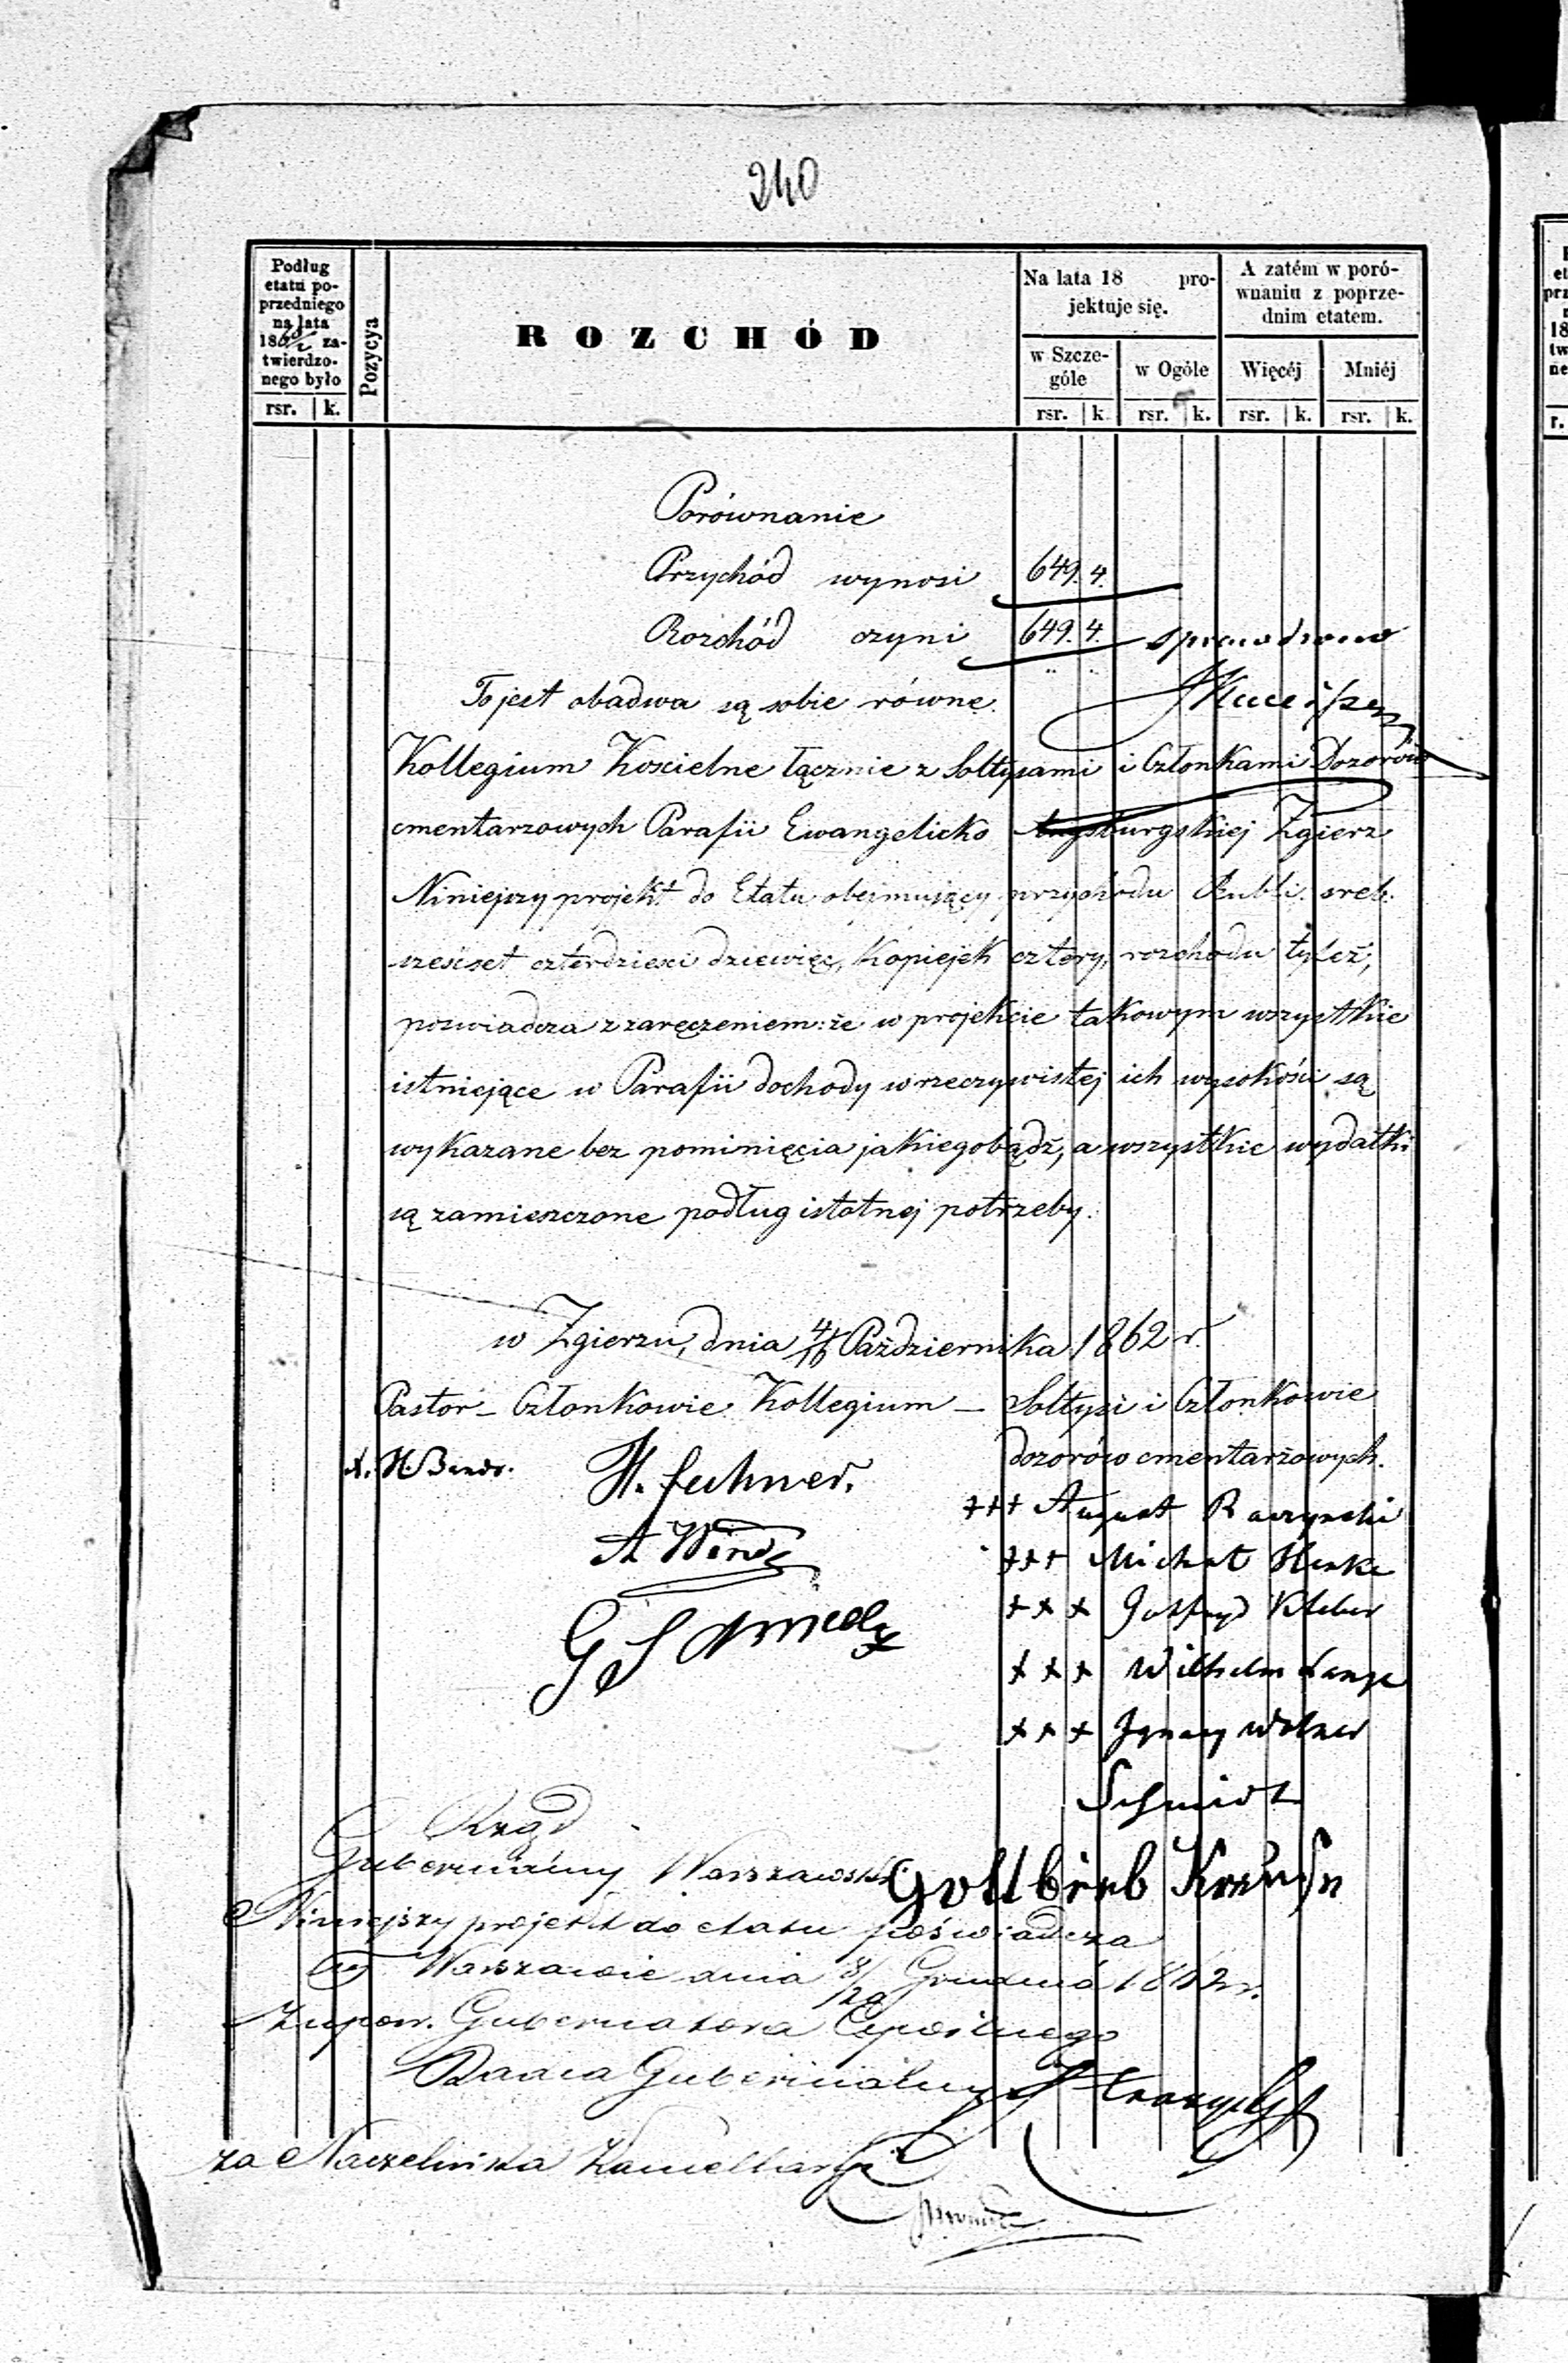 240
Podług
etatu po-
przedniego
na lata
18 za-
twierdzo-
nego było
rsr. k.
Pozycya
ROZCHÓD
Na lata 18 pro-
jektuje się.
w Szcze-
góle
w Ogóle
rsr. k. rsr. k.
A zatém w poró-
wnaniu z poprze-
dnim etatem.
Więcéj Mniéj
rsr. k. rsr. k.
Porównanie
Przychód wynosi 649. 4.
Rozchód czyni 649. 4. sprawdzono
To jest obadwa są sobie równe.
Kollegium Koscielne łącznie z Sołtysami i Członkami Dozorów
cmentarzowych Parafii Ewangelicko Augsburgskiej Zgierz
Niniejszy projekt do Etatu obejmujący przychodu Rubli sreb.
sześćset czterdziesci dziewięc, Kopiejek cztery, rozchodu tyleż,
poswiadcza z zaręczeniem: że w projekcie takowym wszystkie
istniejące w Parafii dochody w rzeczywistej ich wysokości są
wykazane bez pominięcia jakiegobądź, a wszystkie wydatki
są zamieszczone podług istotnej potrzeby.
w Zgierzu, dnia 4/16 Października 1862 r.
Pastor – Członkowie Kollegium – Sołtysi i Członkowie
dozorów cmentarzowych.
H. Fechner.
+++ August Raczynski
+++ Michał
+++ Gottfryd
+++ Wilhelm Lange
+++ Ignacy
Schmidt
Gottlieb Krause
Rząd
Gubernialny Warszawski
Niniejszy projekt do etatu poświadcza
w Warszawie dnia 8/20 Grudnia 1862 r.
Z upow. Gubernatora Cywilnego
Radca Gubernialny
za Naczelnika Kancellaryi